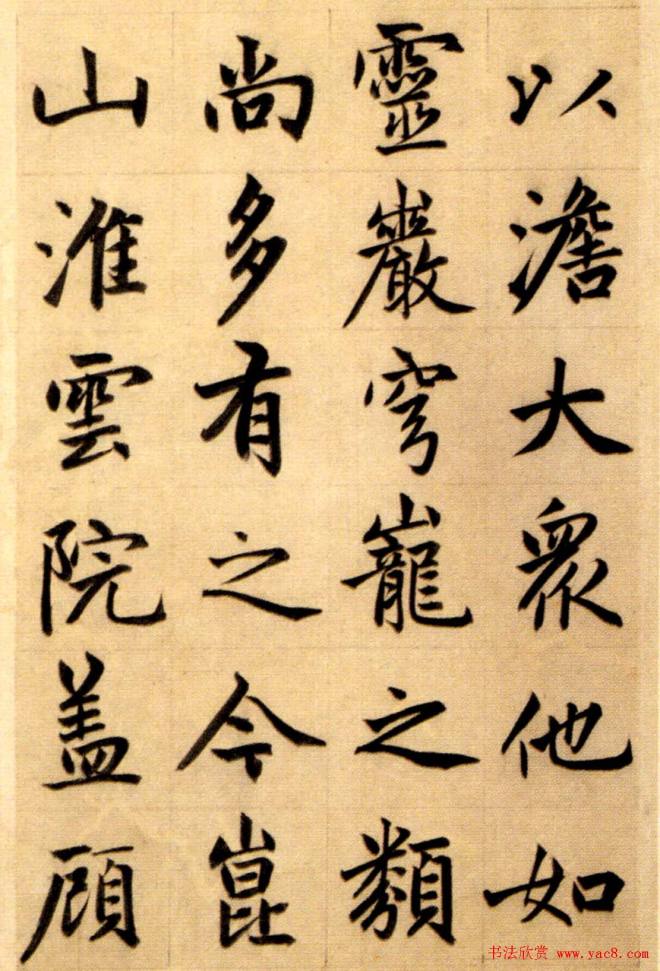 以澹大衆他如
靈巖穹巃之類
尚多有之今崑
山淮雲院盖顧
书法欣赏 www.yac8.com